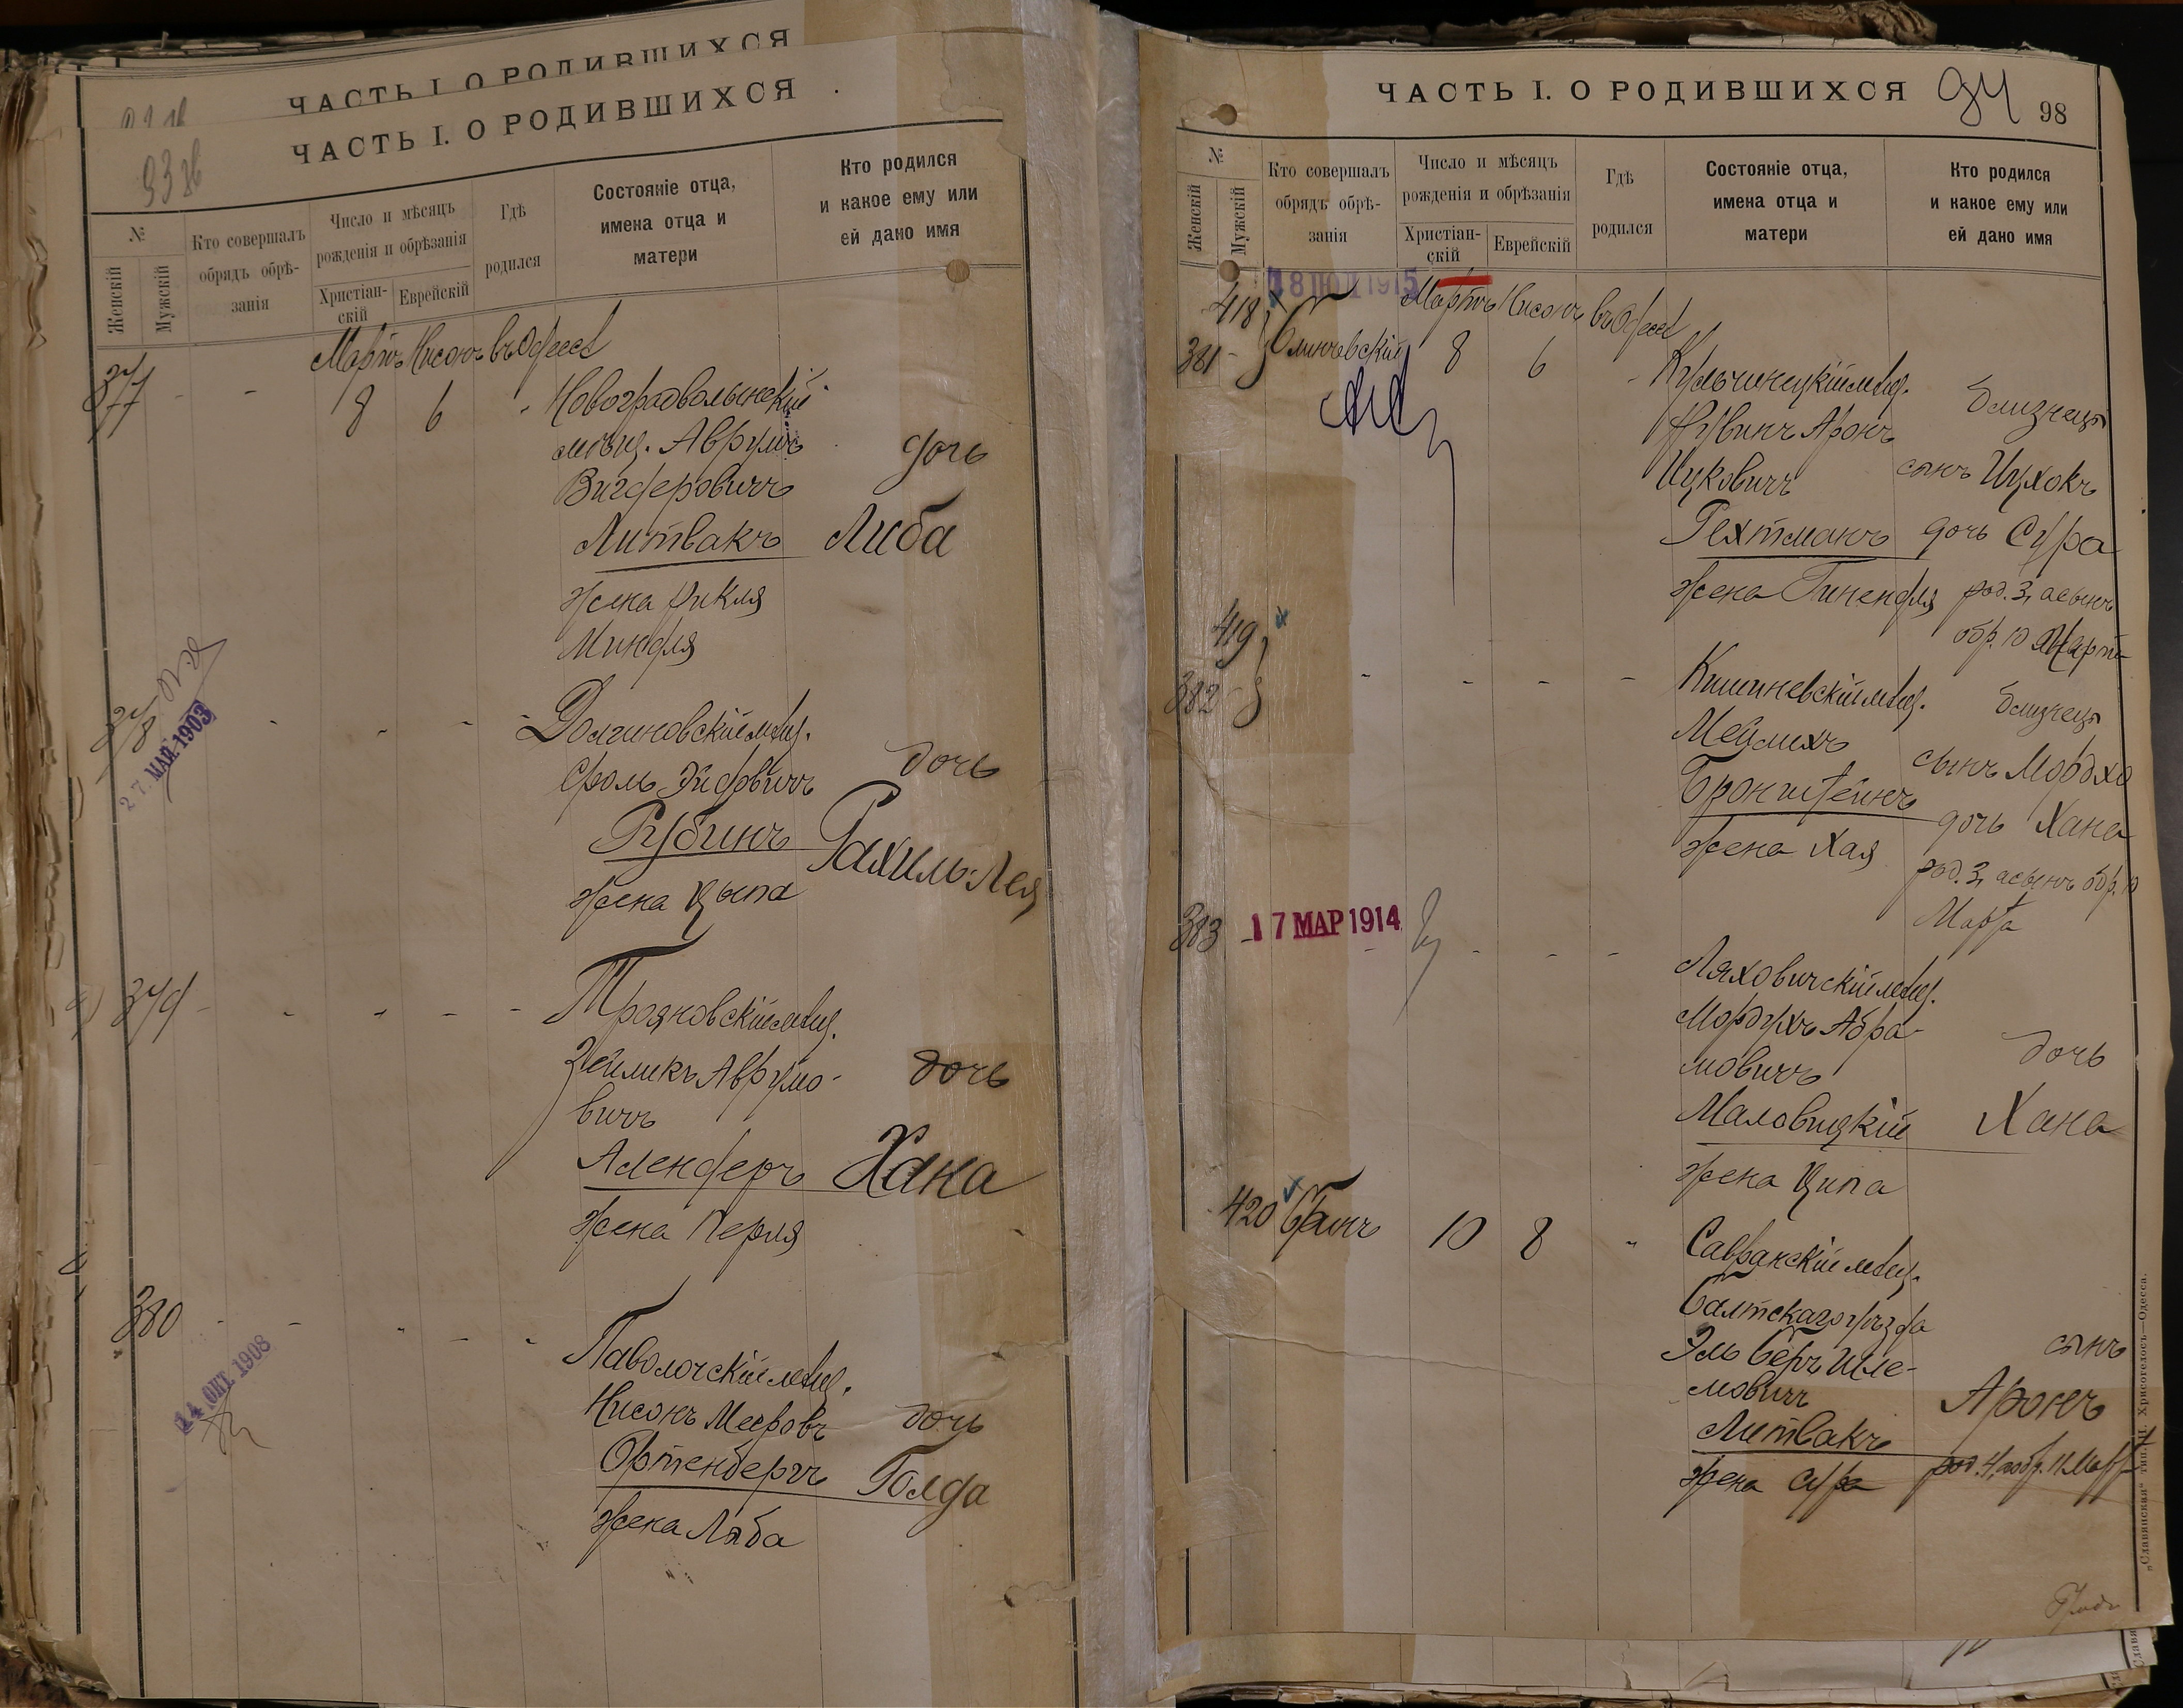 ЧАСТЬ I. О РОДИВШИХСЯ
ЧАСТЬ I. О РОДИВШИХСЯ
№
Женскій
Мужскій
Кто совершалъ
обрядъ обрѣ-
занія
Число и мѣсяцъ
рожденія и обрѣзанія
Христіан-
скій
Еврейскій
Гдѣ
родился
Состояніе отца,
имена отца и
матери
Кто родился
и какое ему или
ей дано имя
Мартъ Нисонъ въ Одессѣ
377 - - 8 6 - Новоградволынскій
мѣщ. Аврумъ дочь
Вигдеровичъ
Литвакъ Либа
жена Рикля
Миндля
378 - - - - Долгиновскій мѣщ.
27 МАЙ 1903
Сроль дочь
Рубинъ Рахиль-Лея
жена Цыпа
379 - - - - - Трояновскій мѣщ.
Зейликъ Аврумо- дочь
вичъ
Алендеръ Хана
жена Перля
380 - - - - - Паволочскій мѣщ.
14 ОКТ 1908
Нисонъ Меерове дочь
Ортенбергъ Голда
жена Ляба
ЧАСТЬ I. О РОДИВШИХСЯ 94 98
№
Женскій
Мужскій
Кто совершалъ
обрядъ обрѣ-
занія
Число и мѣсяцъ
рожденія и обрѣзанія
Христіан-
скій
Еврейскій
Гдѣ
родился
Состояніе отца,
имена отца и
матери
Кто родился
и какое ему или
ей дано имя
1915
Мартъ Нисонъ въ Одессѣ
418
381 - 8 6 - Кульчинецкій мѣщ. близнецы
Нувинъ Аронъ
Ицковичъ сынъ Ицхокъ
Гехтманъ дочь Сура
жена Гинендля род. 3, а сынъ
обр. 10 Марта
419
382 - - - - - Кишиневскій мѣщ. близнецы
Мейлихъ сынъ Мордхо
Бронштейнъ дочь Хана
жена Хая род. 3, а сынъ обр. 10
Марта
383 - 17 МАР 1914 - - - - Ляховичскій мѣщ.
Мордухъ Абра- дочь
мовичъ
Маловицкій Хана
жена Ципа
420 Банъ 10 8 " Савранскій мѣщ.
Балтскаго уѣзда
Эль Беръ Шле- сынъ
мовичъ Аронъ
Литвакъ
жена Сура род. 4, а обр. 11 Марта
„Славянская“ тип. Н. Хрисогелосъ—Одесса.